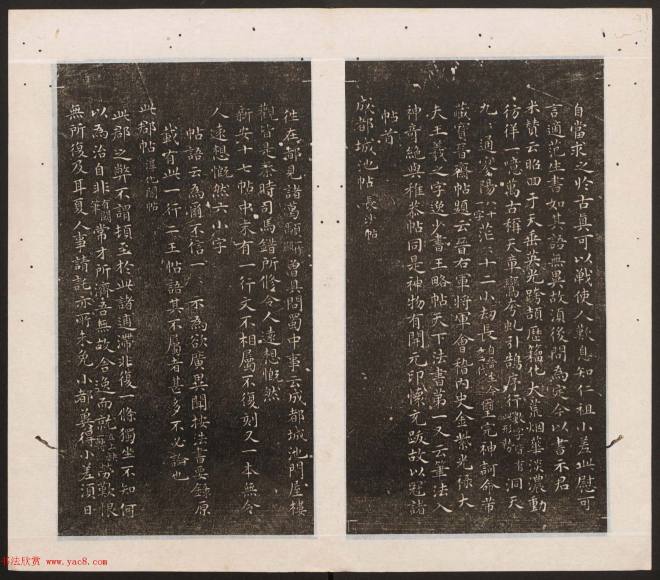 自當求之於古真可以戰使人歎息知仁祖小差此慰可
言適范生書如其語無異故須後問為定今以書示君
米贊云昭回于天垂英光跨頡歷籀化大荒煙華淡濃動
彷徉一噫萬古稱天章鸞夯虬引鵠序行洞天
九通寥陽茫茫十二小劫長完神訶命芾
藏寶晉齋帖題云晉右軍將軍會稽內史金紫光祿大
夫王羲之字逸少書王略帖天下法書第一又云筆法入
神奇絕與稚恭帖同是神物有開元印懷充跋故以冠諸
帖首
成都城池帖 長沙帖
往在都見諸葛顒曾具問蜀中事云成都城池門屋樓
觀皆是秦時司馬錯所修令人遠想慨然
新安十七帖中末有一行文不相屬不復刻又一本無令
人遠想慨然六小字
帖語云為爾不信一一示為欲廣異聞按法書要錄原
載有此一行二王帖語其不屬者甚多不必論也
此郡帖 澄心閣帖
此郡之弊不謂頓至於此諸逋滯非復一條獨坐不知何
以為治自非常才所濟吾無故舍逸而就勞歎恨
無所復及耳夏人事請託亦所未免小都冀得小差須日